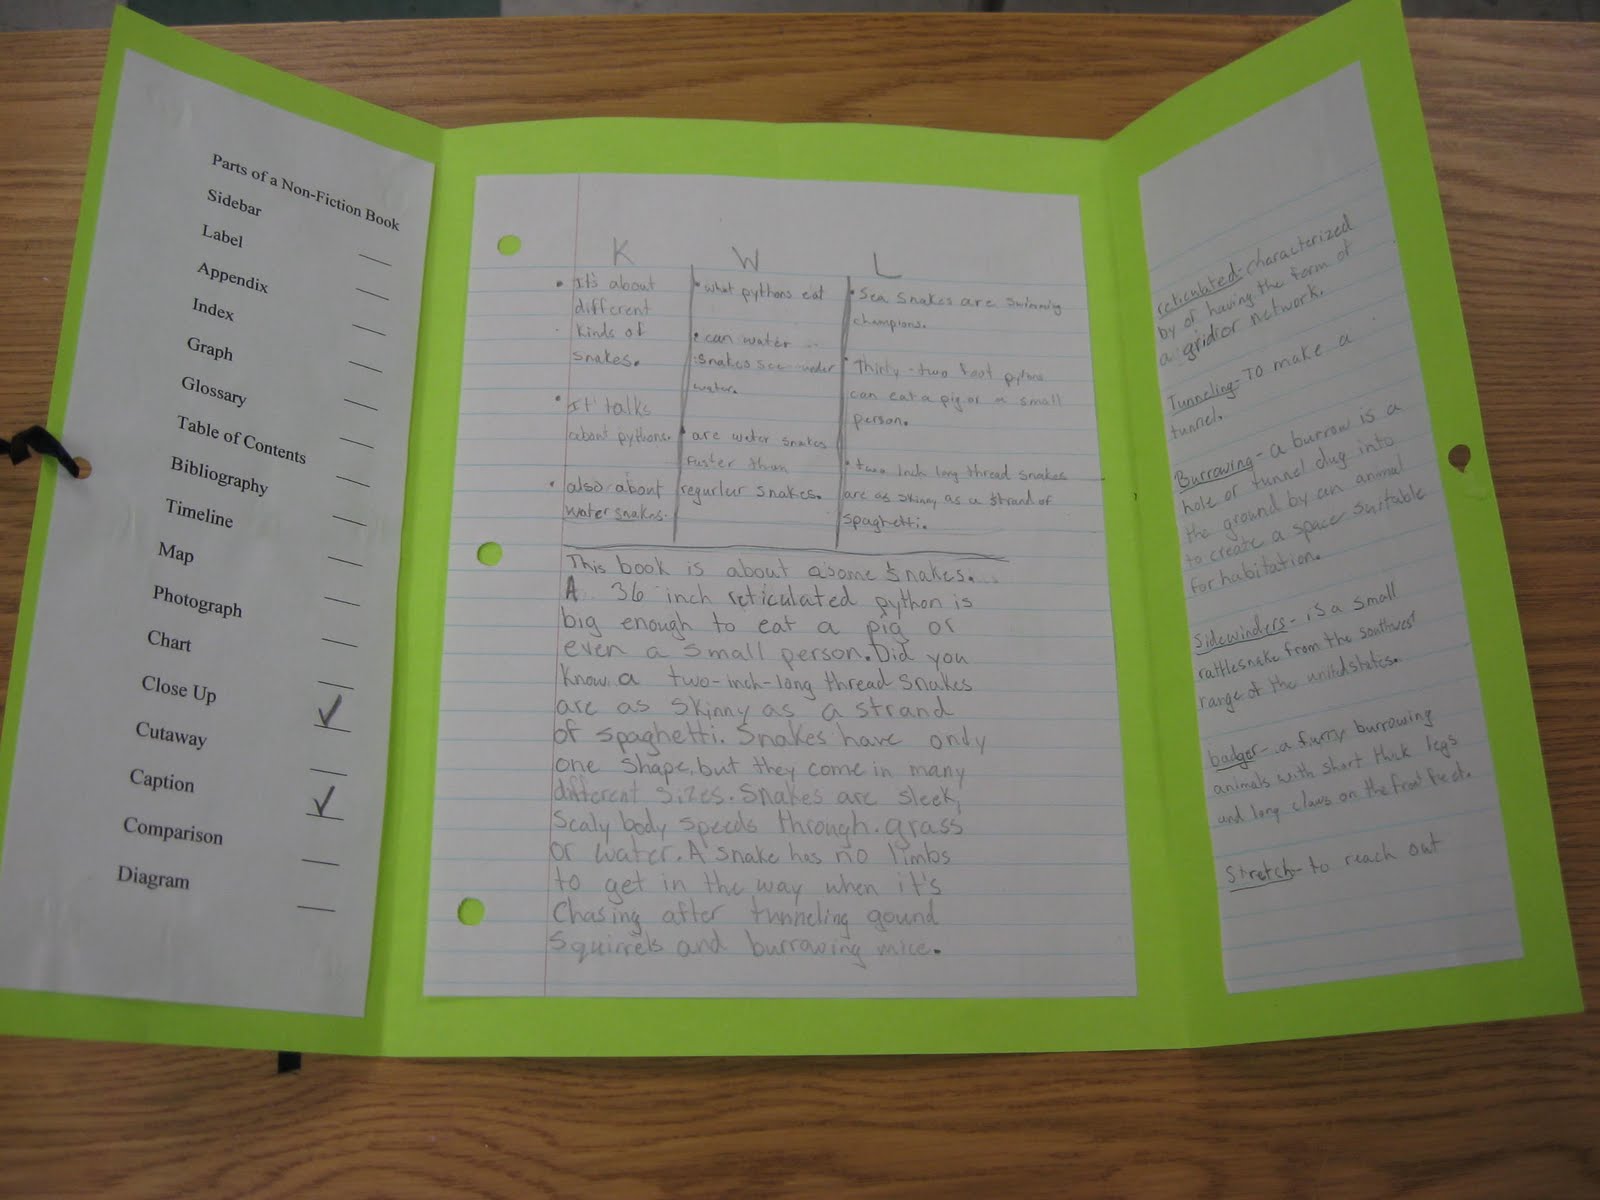 Parts of a Non-Fiction Book
Sidebar
Label
Appendix
Index
Graph
Glossary
Table of Contents
Bibliography
Timeline
Map
Photograph
Chart
Close Up ✓
Cutaway
Caption ✓
Comparison
Diagram
K W L
• It's about
different
kinds of
snakes.
• It talks
about pythons.
• also about
water snakes.
• what pythons eat
• can water
snakes see under
water.
• are water snakes
faster than
regurlur snakes.
• Sea snakes are swimming
champions.
• Thirty-two foot pytons
can eat a pig or a small
person.
• two inch long thread snakes
are as skinny as a strand of
spaghetti.
This book is about asome snakes.
A 36 inch reticulated python is
big enough to eat a pig or
even a small person. Did you
know a two-inch-long thread snakes
are as skinny as a strand
of spaghetti. Snakes have only
one shape, but they come in many
different sizes. Snakes are sleek,
scaly body speeds through grass
or water. A snake has no limbs
to get in the way when it's
chasing after tunneling gound
squirrels and burrowing mice.
reticulated- characterized
by or having the form of
a grid or network.
Tunneling- TO make a
tunnel.
Burrowing- a burrow is a
hole or tunnel dug into
the ground by an animal
to create a space suitable
for habitation.
Sidewinders- is a small
rattlesnake from the southwest
range of the united states.
badger- a furry burrowing
animals with short thick legs
and long claws on the front feet.
Stretch- to reach out